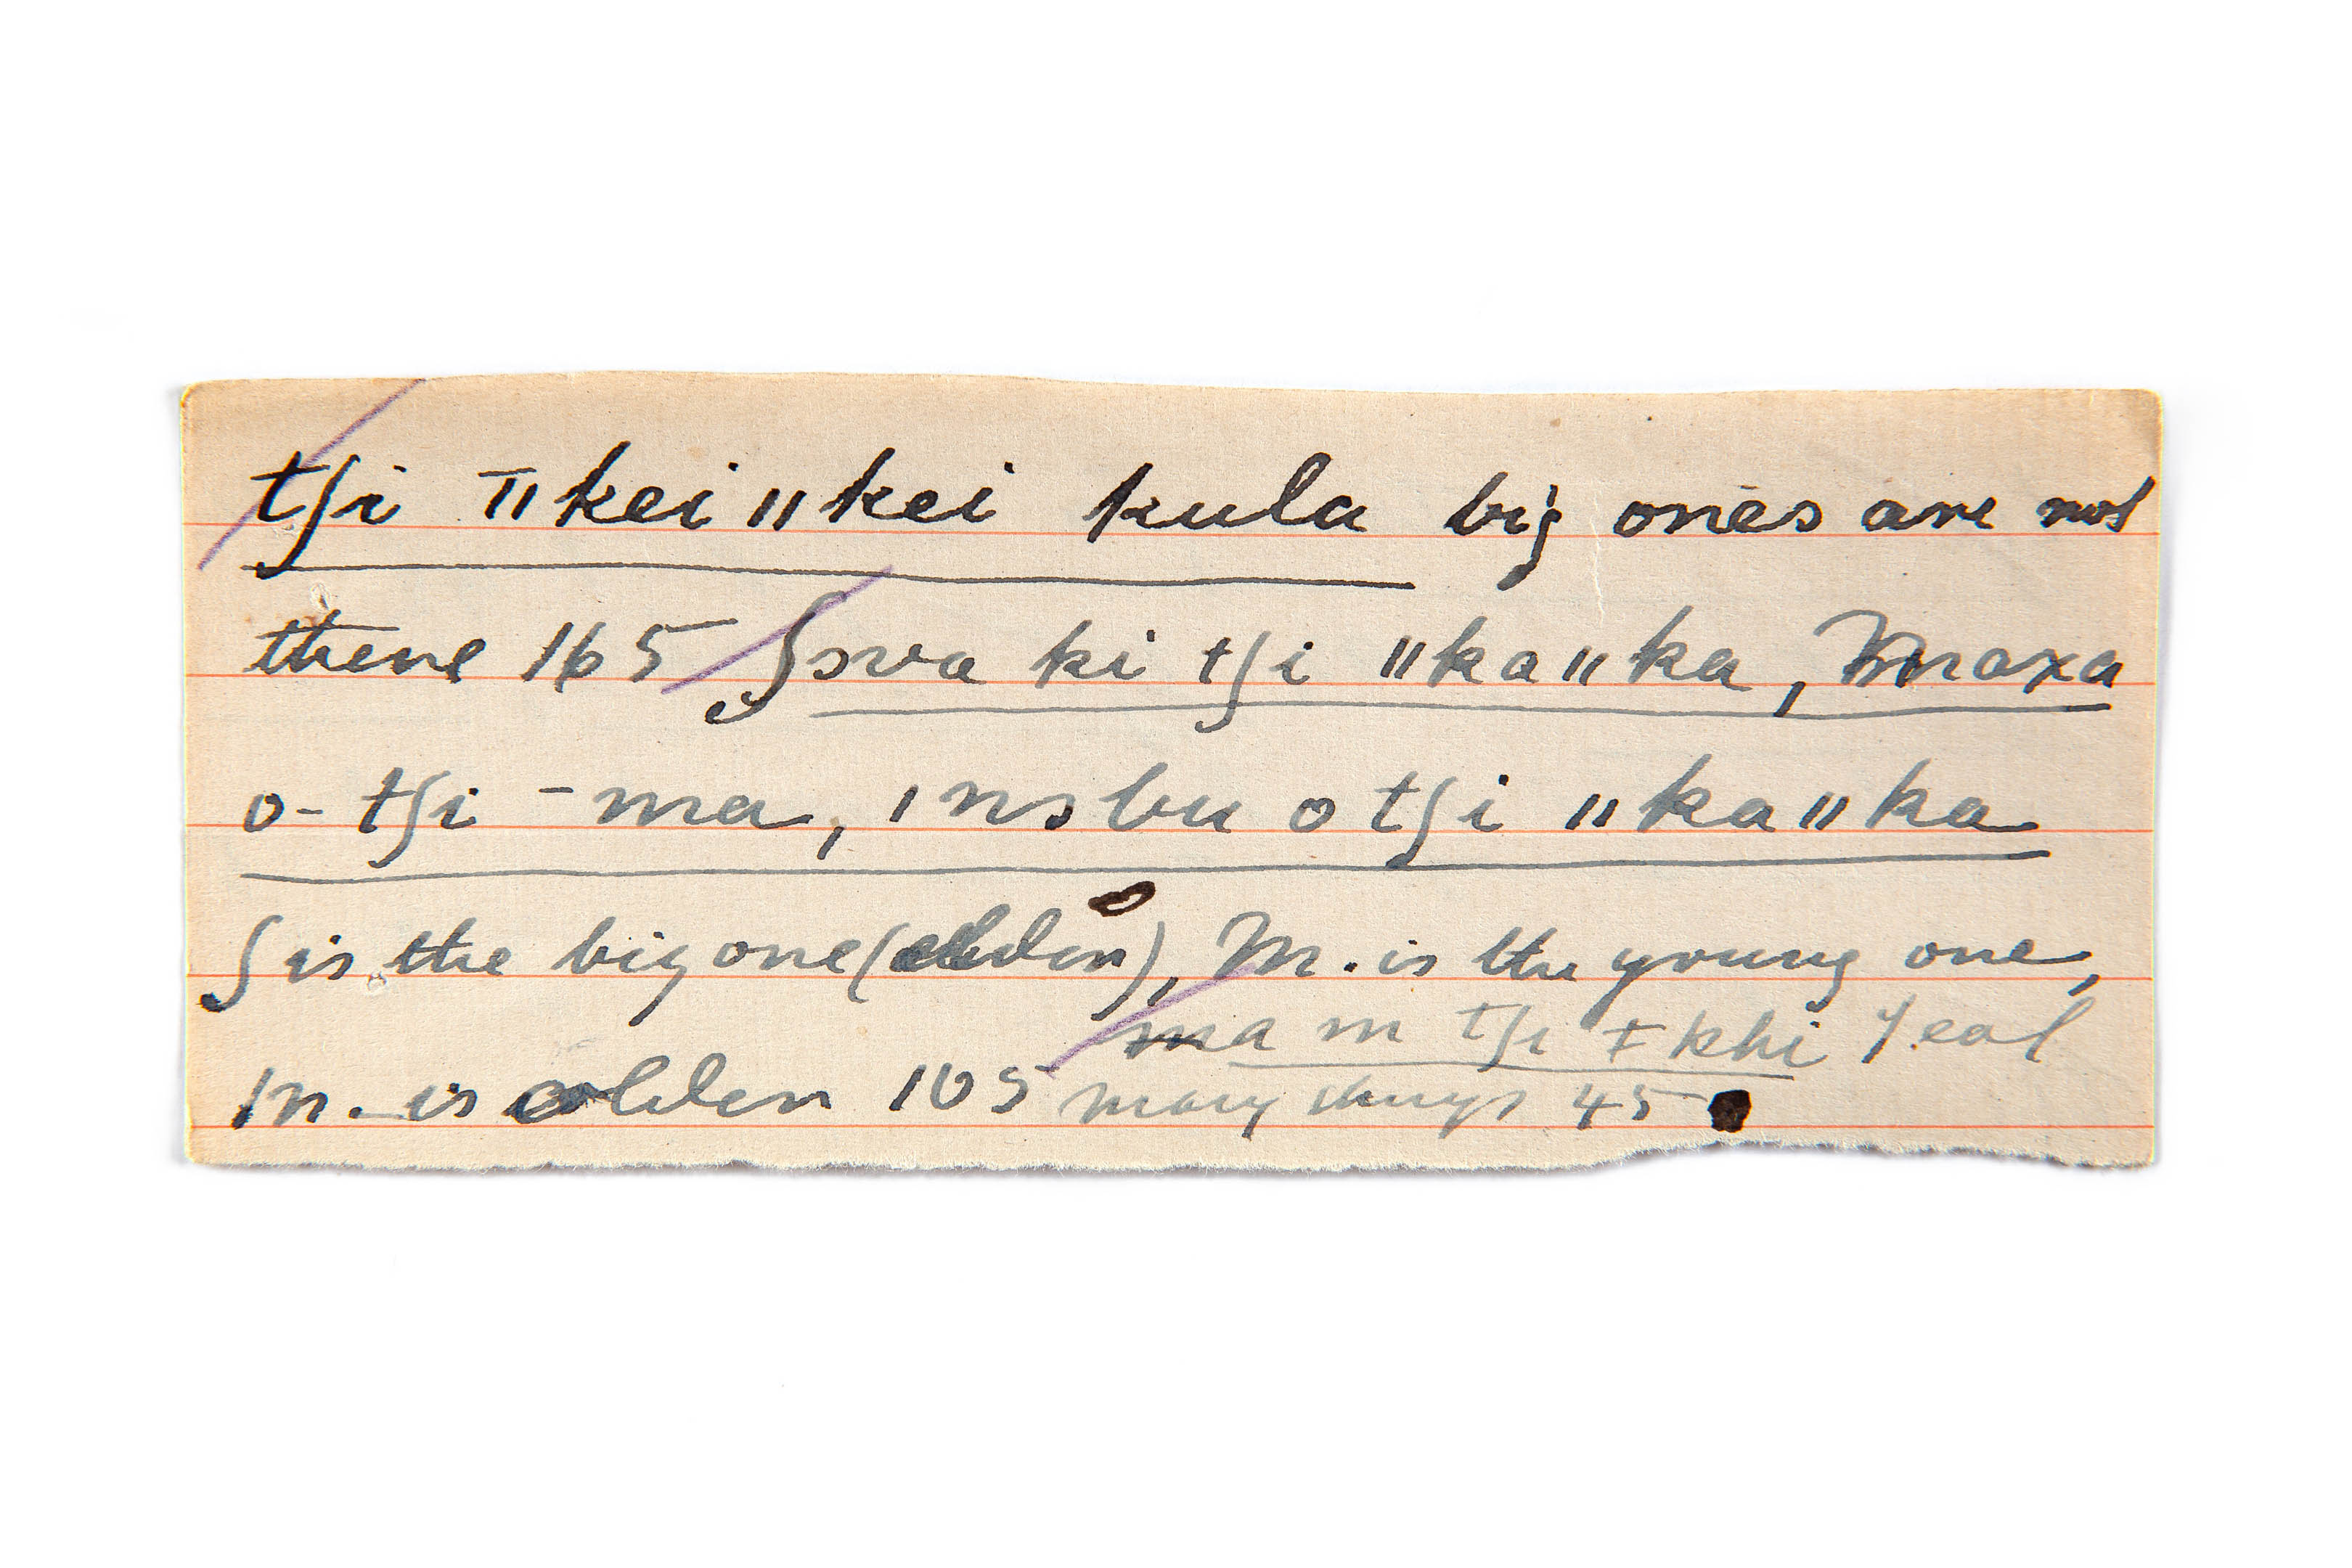 tʃi ‖kei‖kei kula big ones are not
there 165 ʃova ki tʃi ‖ka‖ka, Maxa
o- tʃi -ma, ınsbu o tʃi ‖ka‖ka
ʃ is the big one (elder), M. is the young one,
ma m tʃi ǂkhi I eat
ın. is older 105 many things 45